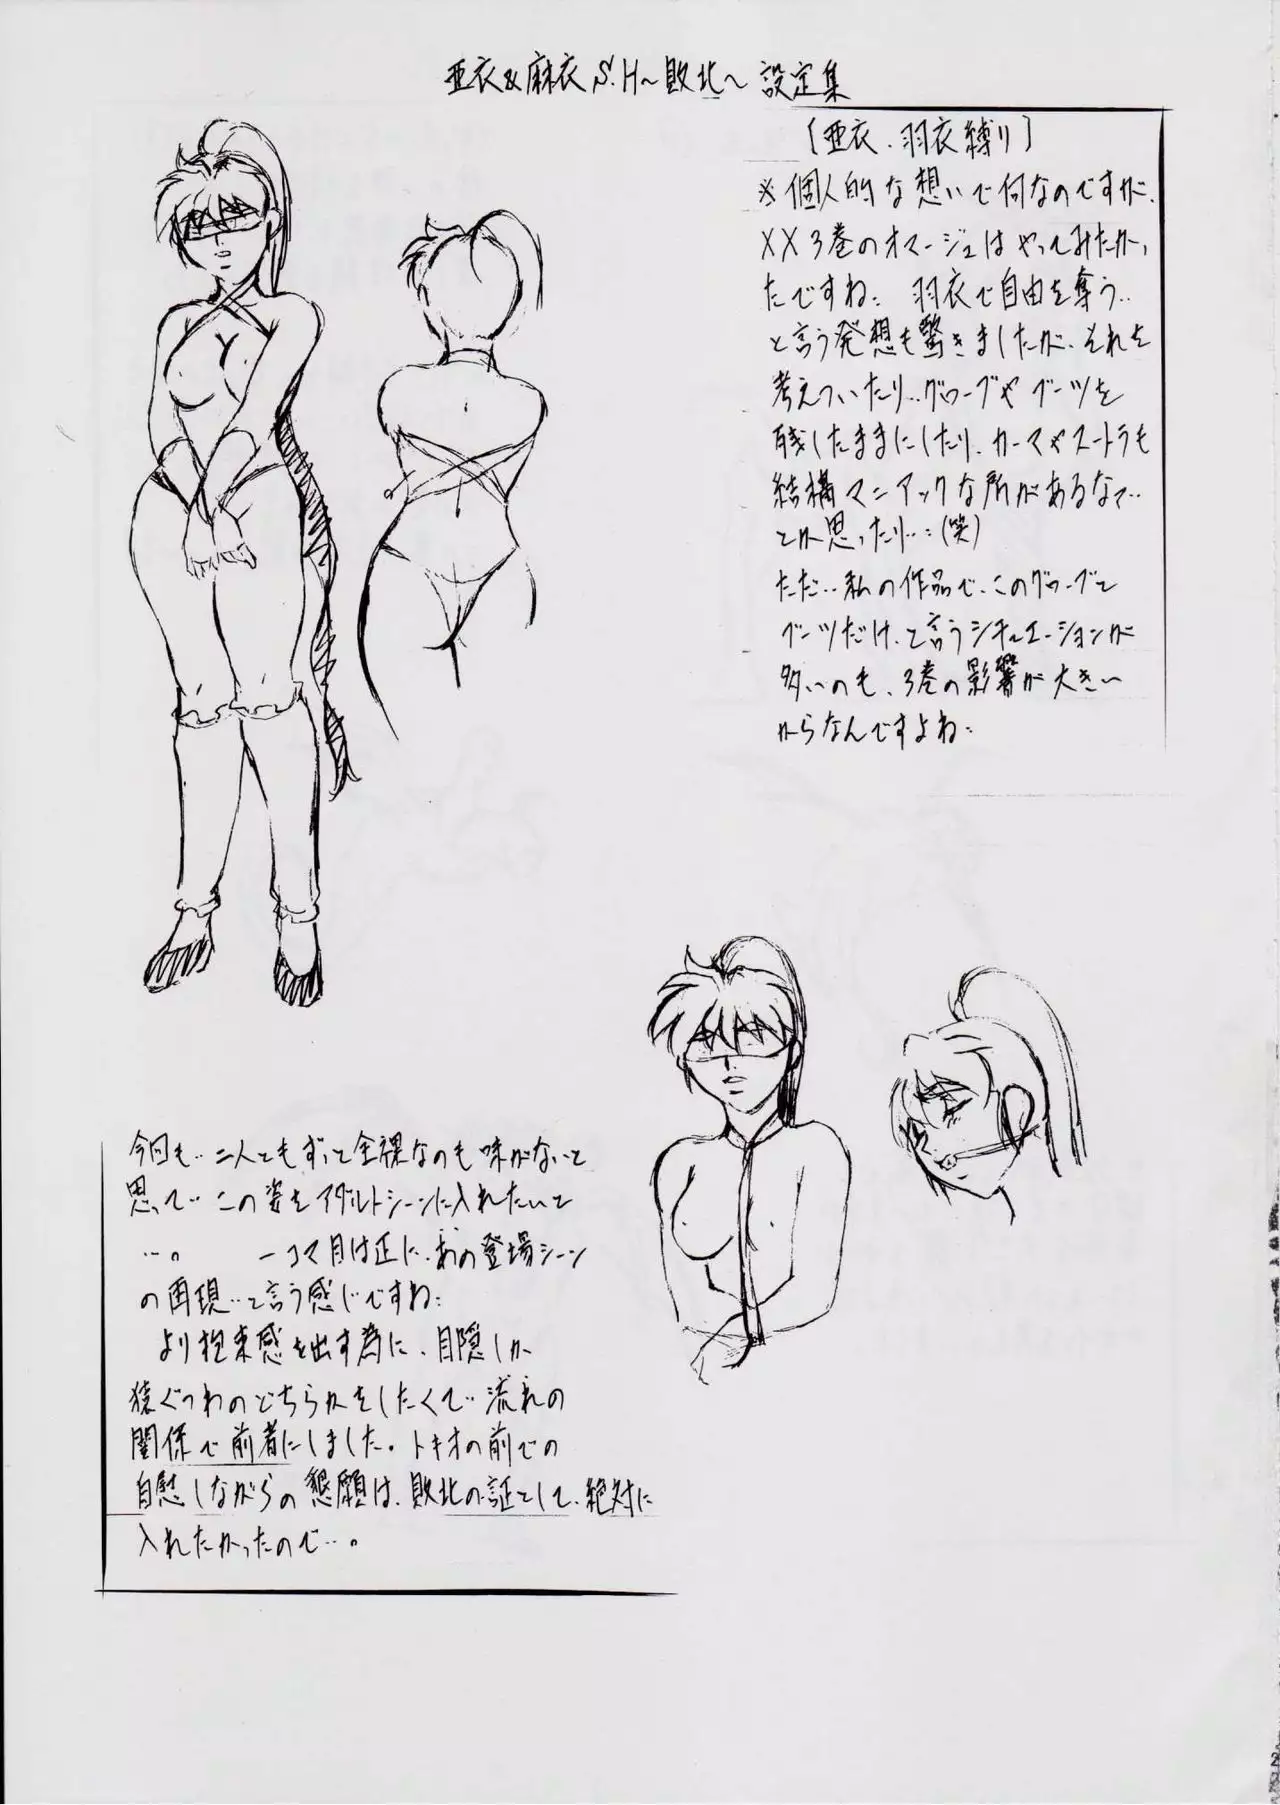 亜衣&麻衣 S.H～敗北～ 設定集
[亜衣、羽衣縛り]
※個人的な想いで何なのですが、
XX3巻のオマージュはやってみたかっ
たですね… 羽衣で自由を奪う…
と言う発想も驚きましたが、それを
考えついたり…グローブやブーツを
残したままにしたり、カーマやスートラも
結構マニアックな所があるなって…
とか思ったり…(笑)
ただ…私の作品で、このグローブと
ブーツだけ、と言うシチュエーションが
多いのも、3巻の影響が大きい
からなんですよね…
今回も…二人ともずっと全裸なのも味がないと
思って…この姿をアダルトシーンに入れたいと
…。 一コマ目は正に、あの登場シーン
の再現…と言う感じですね…
より拘束感を出す為に、目隠しか
猿ぐつわのどちらかをしたくて…流れの
関係で前者にしました。トキオの前での
自慰しながらの懇願は、敗北の証として、絶対に
入れたかったので…。
2